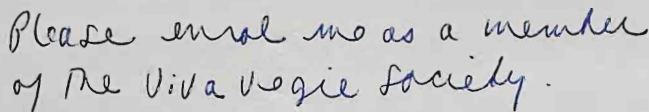 Please enrol me as a member
of The Viva Vegie Society.